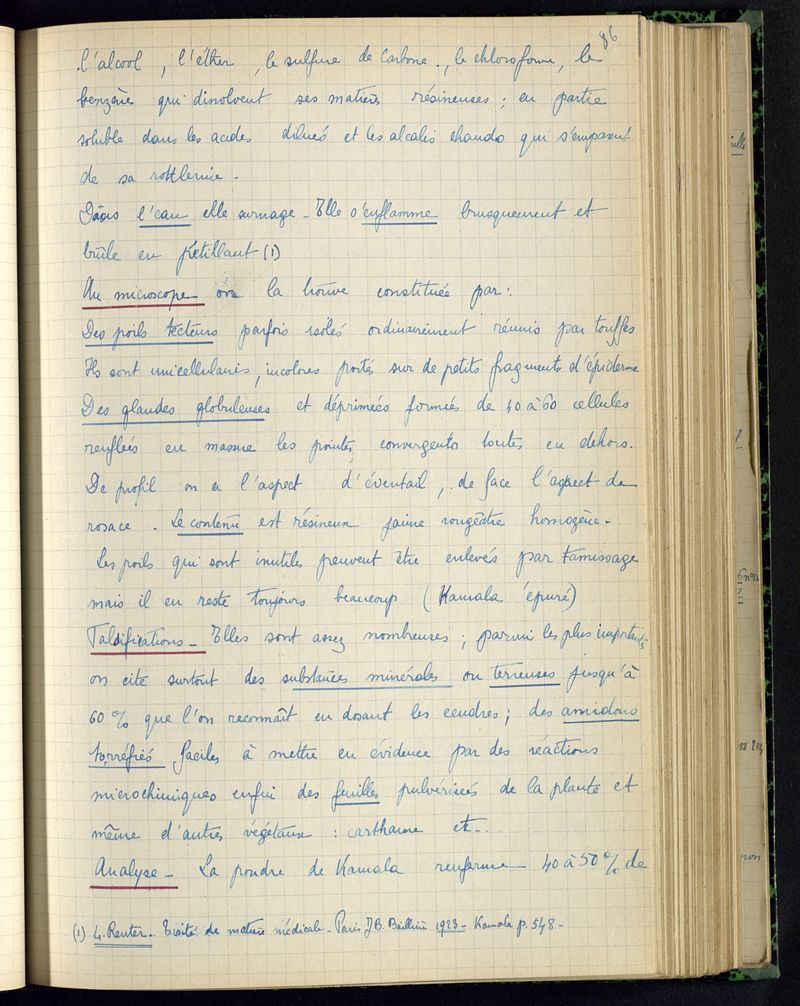 86
l'alcool, l'éther, le sulfure de Carbone, le chloroforme, le
benzène qui dissolvent ses matières résineuses ; en partie
soluble dans les acides dilués et les alcalis chauds qui s'emparent
de sa rottlerine -
Dans l'eau elle surnage - Elle s'enflamme brusquement et
brûle en pétillant (1)
Au microscope on la trouve constituée par :
Des poils tecteurs parfois isolés ordinairement réunis par touffes
Ils sont unicellulaires, incolores portés sur de petits fragments d'épiderme
Des glandes globuleuses et déprimées formées de 40 à 60 cellules
renflées en massue les pointes convergents toutes en dehors.
De profil on a l'aspect d'éventail, de face l'aspect de
rosace. Le contenu est résineux jaune rougeâtre homogène -
Les poils qui sont inutiles peuvent être enlevés par Tamissage
mais il en reste toujours beaucoup (Kamala épuré)
Falsifications - Elles sont assez nombreuses ; parmi les plus importants
on cite surtout des substances minérales ou terreuses jusqu'à
60 % que l'on reconnaît en dosant les cendres ; des amidons
torréfiés faciles à mettre en évidence par des réactions
microchimiques enfin des feuilles pulvérisées de la plante et
même d'autres végétaux : carthame etc -
Analyse - La poudre de Kamala renferme 40 à 50 % de
(1) L. Reuter. Traité de matière médicale - Paris J B. Baillière 1923 - Kamala p. 548 -